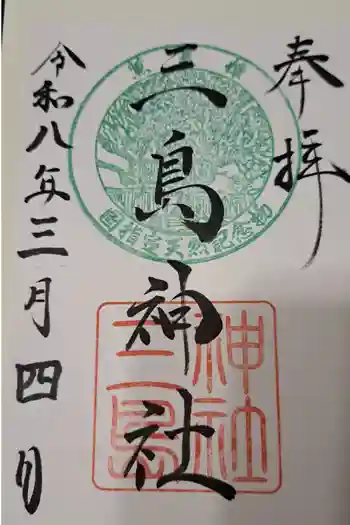 奉拝
三島神社
令和八年三月四日
国指定天然記念物
神社
三島